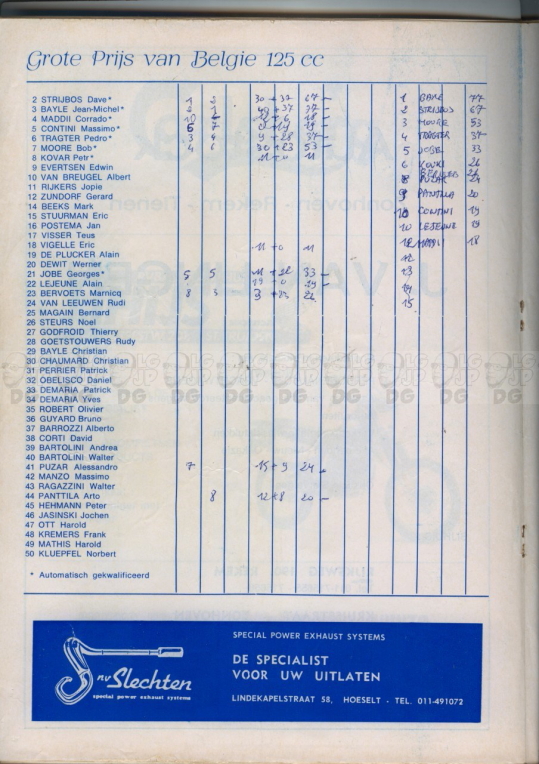 Grote Prijs van Belgie 125 cc
2 STRIJBOS Dave* 1 2 30 + 37 67 -
3 BAYLE Jean-Michel* 2 1 40 + 37 77 -
4 MADDII Corrado* 10 18 -
5 CONTINI Massimo* 5 7 19 -
6 TRAGTER Pedro* 3 4 9 + 28 37 -
7 MOORE Bob* 4 6 30 + 23 53
8 KOVAR Petr* 11 + 0 11
9 EVERTSEN Edwin
10 VAN BREUGEL Albert
11 RIJKERS Jopie
12 ZUNDORF Gerard
14 BEEKS Mark
15 STUURMAN Eric
16 POSTEMA Jan
17 VISSER Teus
18 VIGELLE Eric 11 + 0 11
19 DE PLUCKER Alain
20 DEWIT Werner
21 JOBE Georges* 5 5 11 + 22 33 -
22 LEJEUNE Alain 19 + 0 19 -
23 BERVOETS Marnicq 8 3 3 + 23 26
24 VAN LEEUWEN Rudi
25 MAGAIN Bernard
26 STEURS Noel
27 GODFROID Thierry
28 GOETSTOUWERS Rudy
29 BAYLE Christian
30 CHAUMARD Christian
31 PERRIER Patrick
32 OBELISCO Daniel
33 DEMARIA Patrick
34 DEMARIA Yves
35 ROBERT Olivier
36 GUYARD Bruno
37 BARROZZI Alberto
38 CORTI David
39 BARTOLINI Andrea
40 BARTOLINI Walter
41 PUZAR Alessandro 7 15 + 9 24 -
42 MANZO Massimo
43 RAGAZZINI Walter
44 PANTTILA Arto 8 12 + 8 20 -
45 HEHMANN Peter
46 JASINSKI Jochen
47 OTT Harold
48 KREMERS Frank
49 MATHIS Harold
50 KLUEPFEL Norbert
* Automatisch gekwalificeerd
1 BAYLE 77
2 STRIJBOS 67
3 MOORE 53
4 TRAGTER 37
5 JOBE 33
6 26
8 PUZAR 24
9 PANTILLA 20
10 CONTINI 19
10 LEJEUNE 19
12 18
12
13
14
15
nv Slechten
special power exhaust systems
SPECIAL POWER EXHAUST SYSTEMS
DE SPECIALIST
VOOR UW UITLATEN
LINDEKAPELSTRAAT 58, HOESELT - TEL. 011-491072
DG DG DG DG DG DG DG DG DG DG